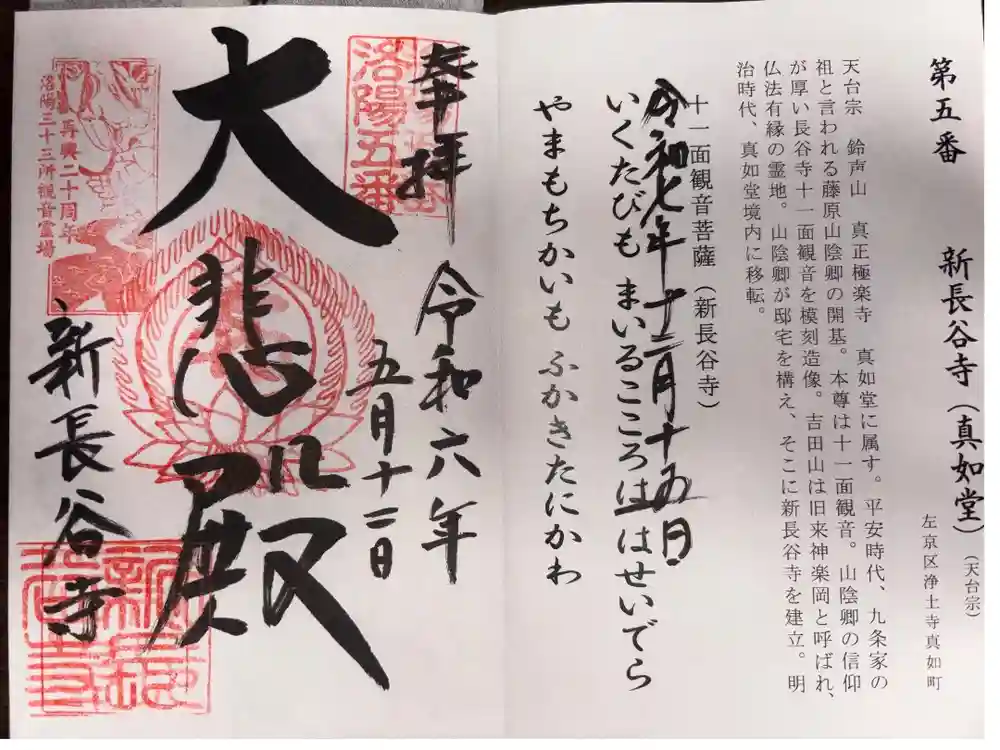 第五番　新長谷寺（真如堂）（天台宗）
左京区浄土寺真如町
天台宗　鈴声山　真正極楽寺　真如堂に属す。平安時代、九条家の
祖と言われる藤原山陰卿の開基。本尊は十一面観音。山陰卿の信仰
が厚い長谷寺十一面観音を模刻造像。吉田山は旧来神楽岡と呼ばれ、
仏法有縁の霊地。山陰卿が邸宅を構え、そこに新長谷寺を建立。明
治時代、真如堂境内に移転。
十一面観音菩薩（新長谷寺）
令和七年十二月十五日
いくたびも まいるこころは はせいでら
やまもちかいも ふかきたにかわ
奉拝
洛陽五番
令和六年
五月十二日
大悲殿
新長谷寺
再興二十周年
洛陽三十三所観音霊場